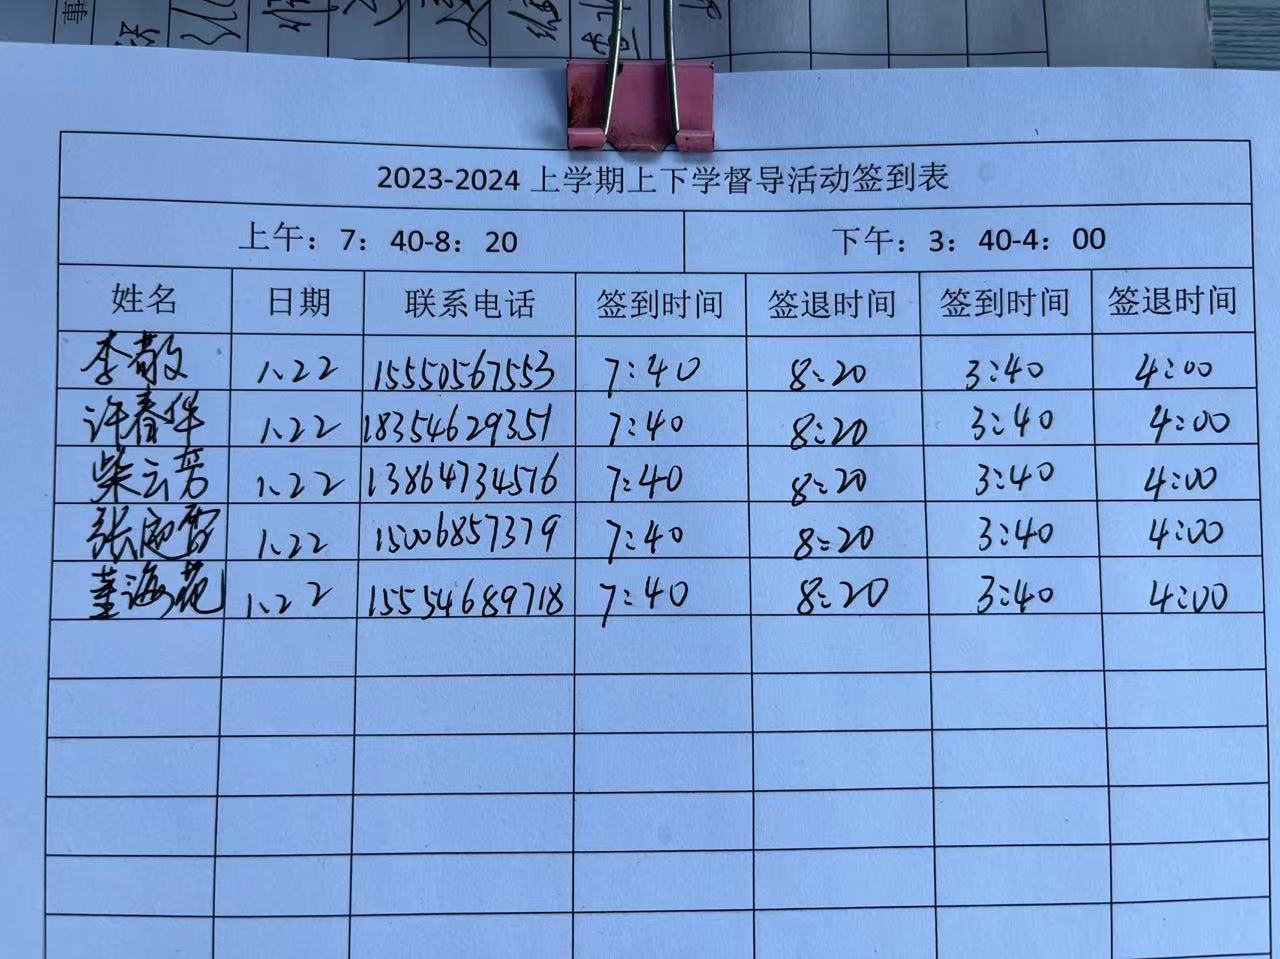 事
2023-2024 上学期上下学督导活动签到表
上午：7：40-8：20 下午：3：40-4：00
姓名 日期 联系电话 签到时间 签退时间 签到时间 签退时间
李敬 1.22 15550567553 7:40 8:20 3:40 4:00
许春华 1.22 18354629351 7:40 8:20 3:40 4:00
柴云芳 1.22 13864734576 7:40 8:20 3:40 4:00
张 1.22 15006857379 7:40 8:20 3:40 4:00
董海苑 1.22 15554689718 7:40 8:20 3:40 4:00